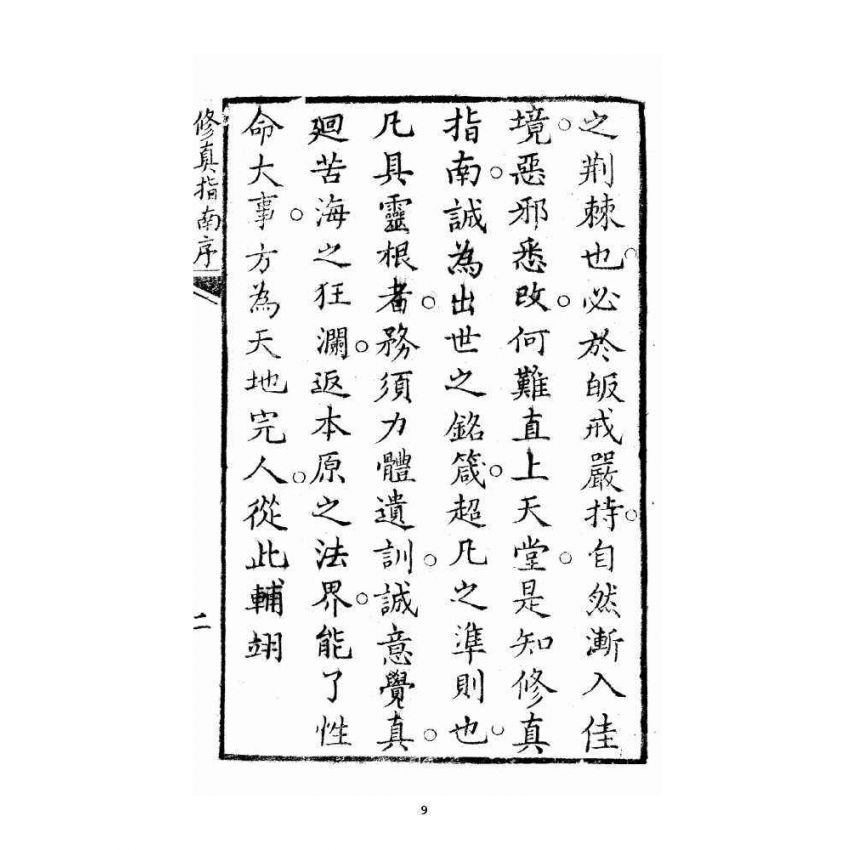 之荆棘也。必於皈戒嚴持。自然漸入佳
境。惡邪悉改。何難直上天堂。是知修真
指南。誠為出世之銘箴。超凡之準則也。
凡具靈根者。務須力體遺訓。誠意覺真。
廻苦海之狂瀾。返本原之法界。能了性
命大事。方為天地完人。從此輔翊
修真指南序
二
9